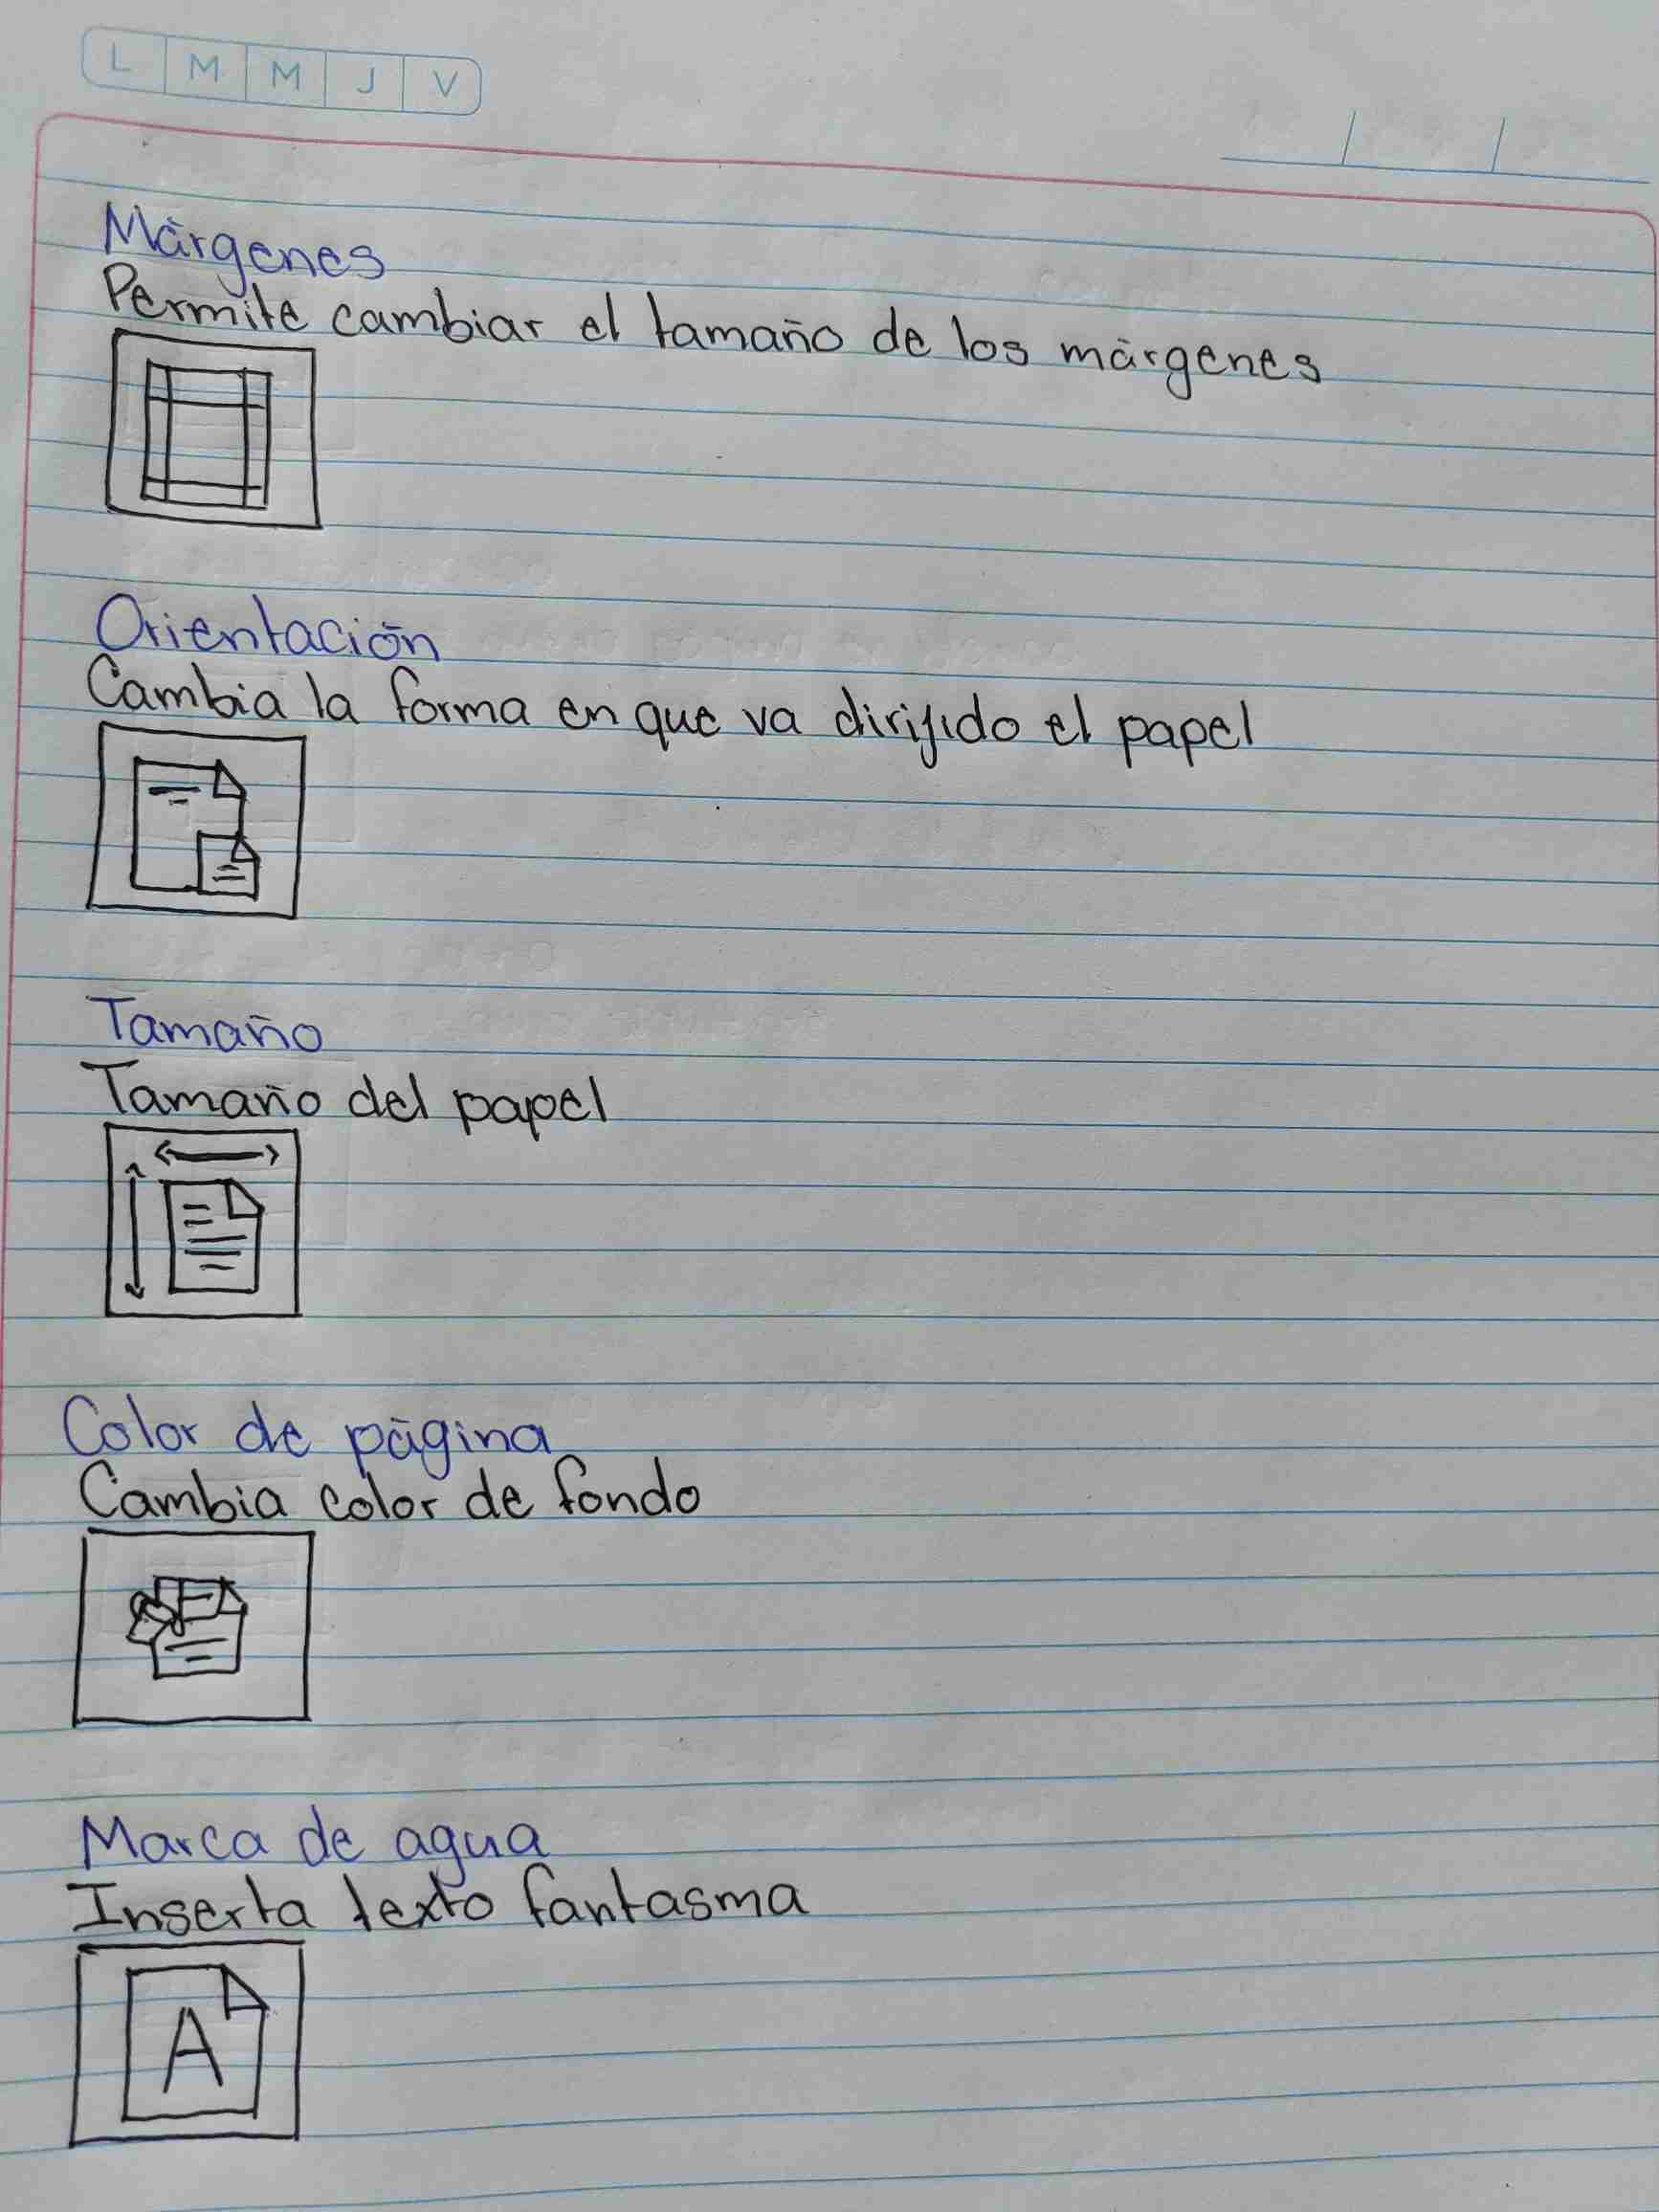 L M M J V
Márgenes
Permite cambiar el tamaño de los márgenes
Orientación
Cambia la forma en que va dirijido el papel
Tamaño
Tamaño del papel
Color de página
Cambia color de fondo
Marca de agua
Inserta texto fantasma
A